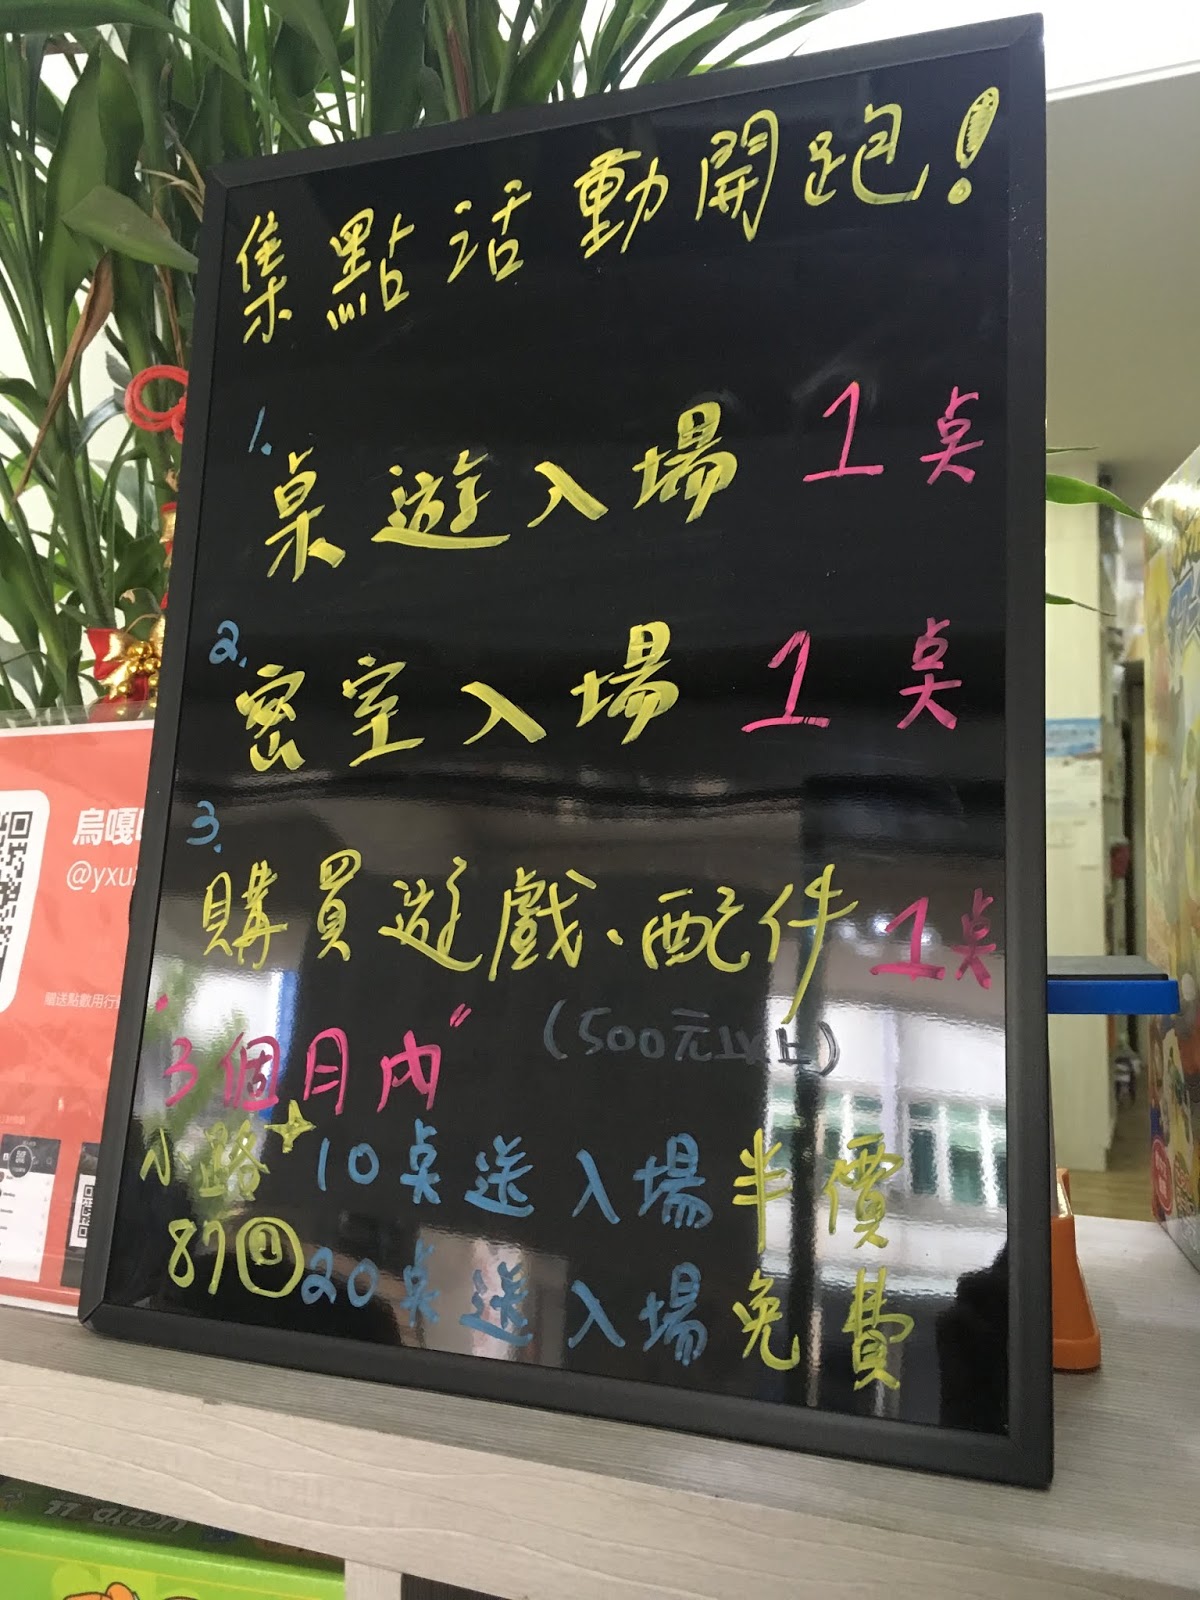 集點活動開跑!
1.
桌遊入場 1点
2.
密室入場 1点
3.
購買遊戲、配件 1点
(500元以上)
"3個月內"
小路 10点送入場半價
87 20点送入場免費
烏嘎
@yxu
贈送點數用行